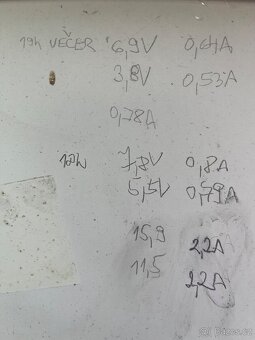 19h VEČER 6,9V 0,64A
3,8V 0,53A
0,78A
10h 7,8V 0,8A
5,5V 0,79A
15,9 2,2A
11,5 2,2A